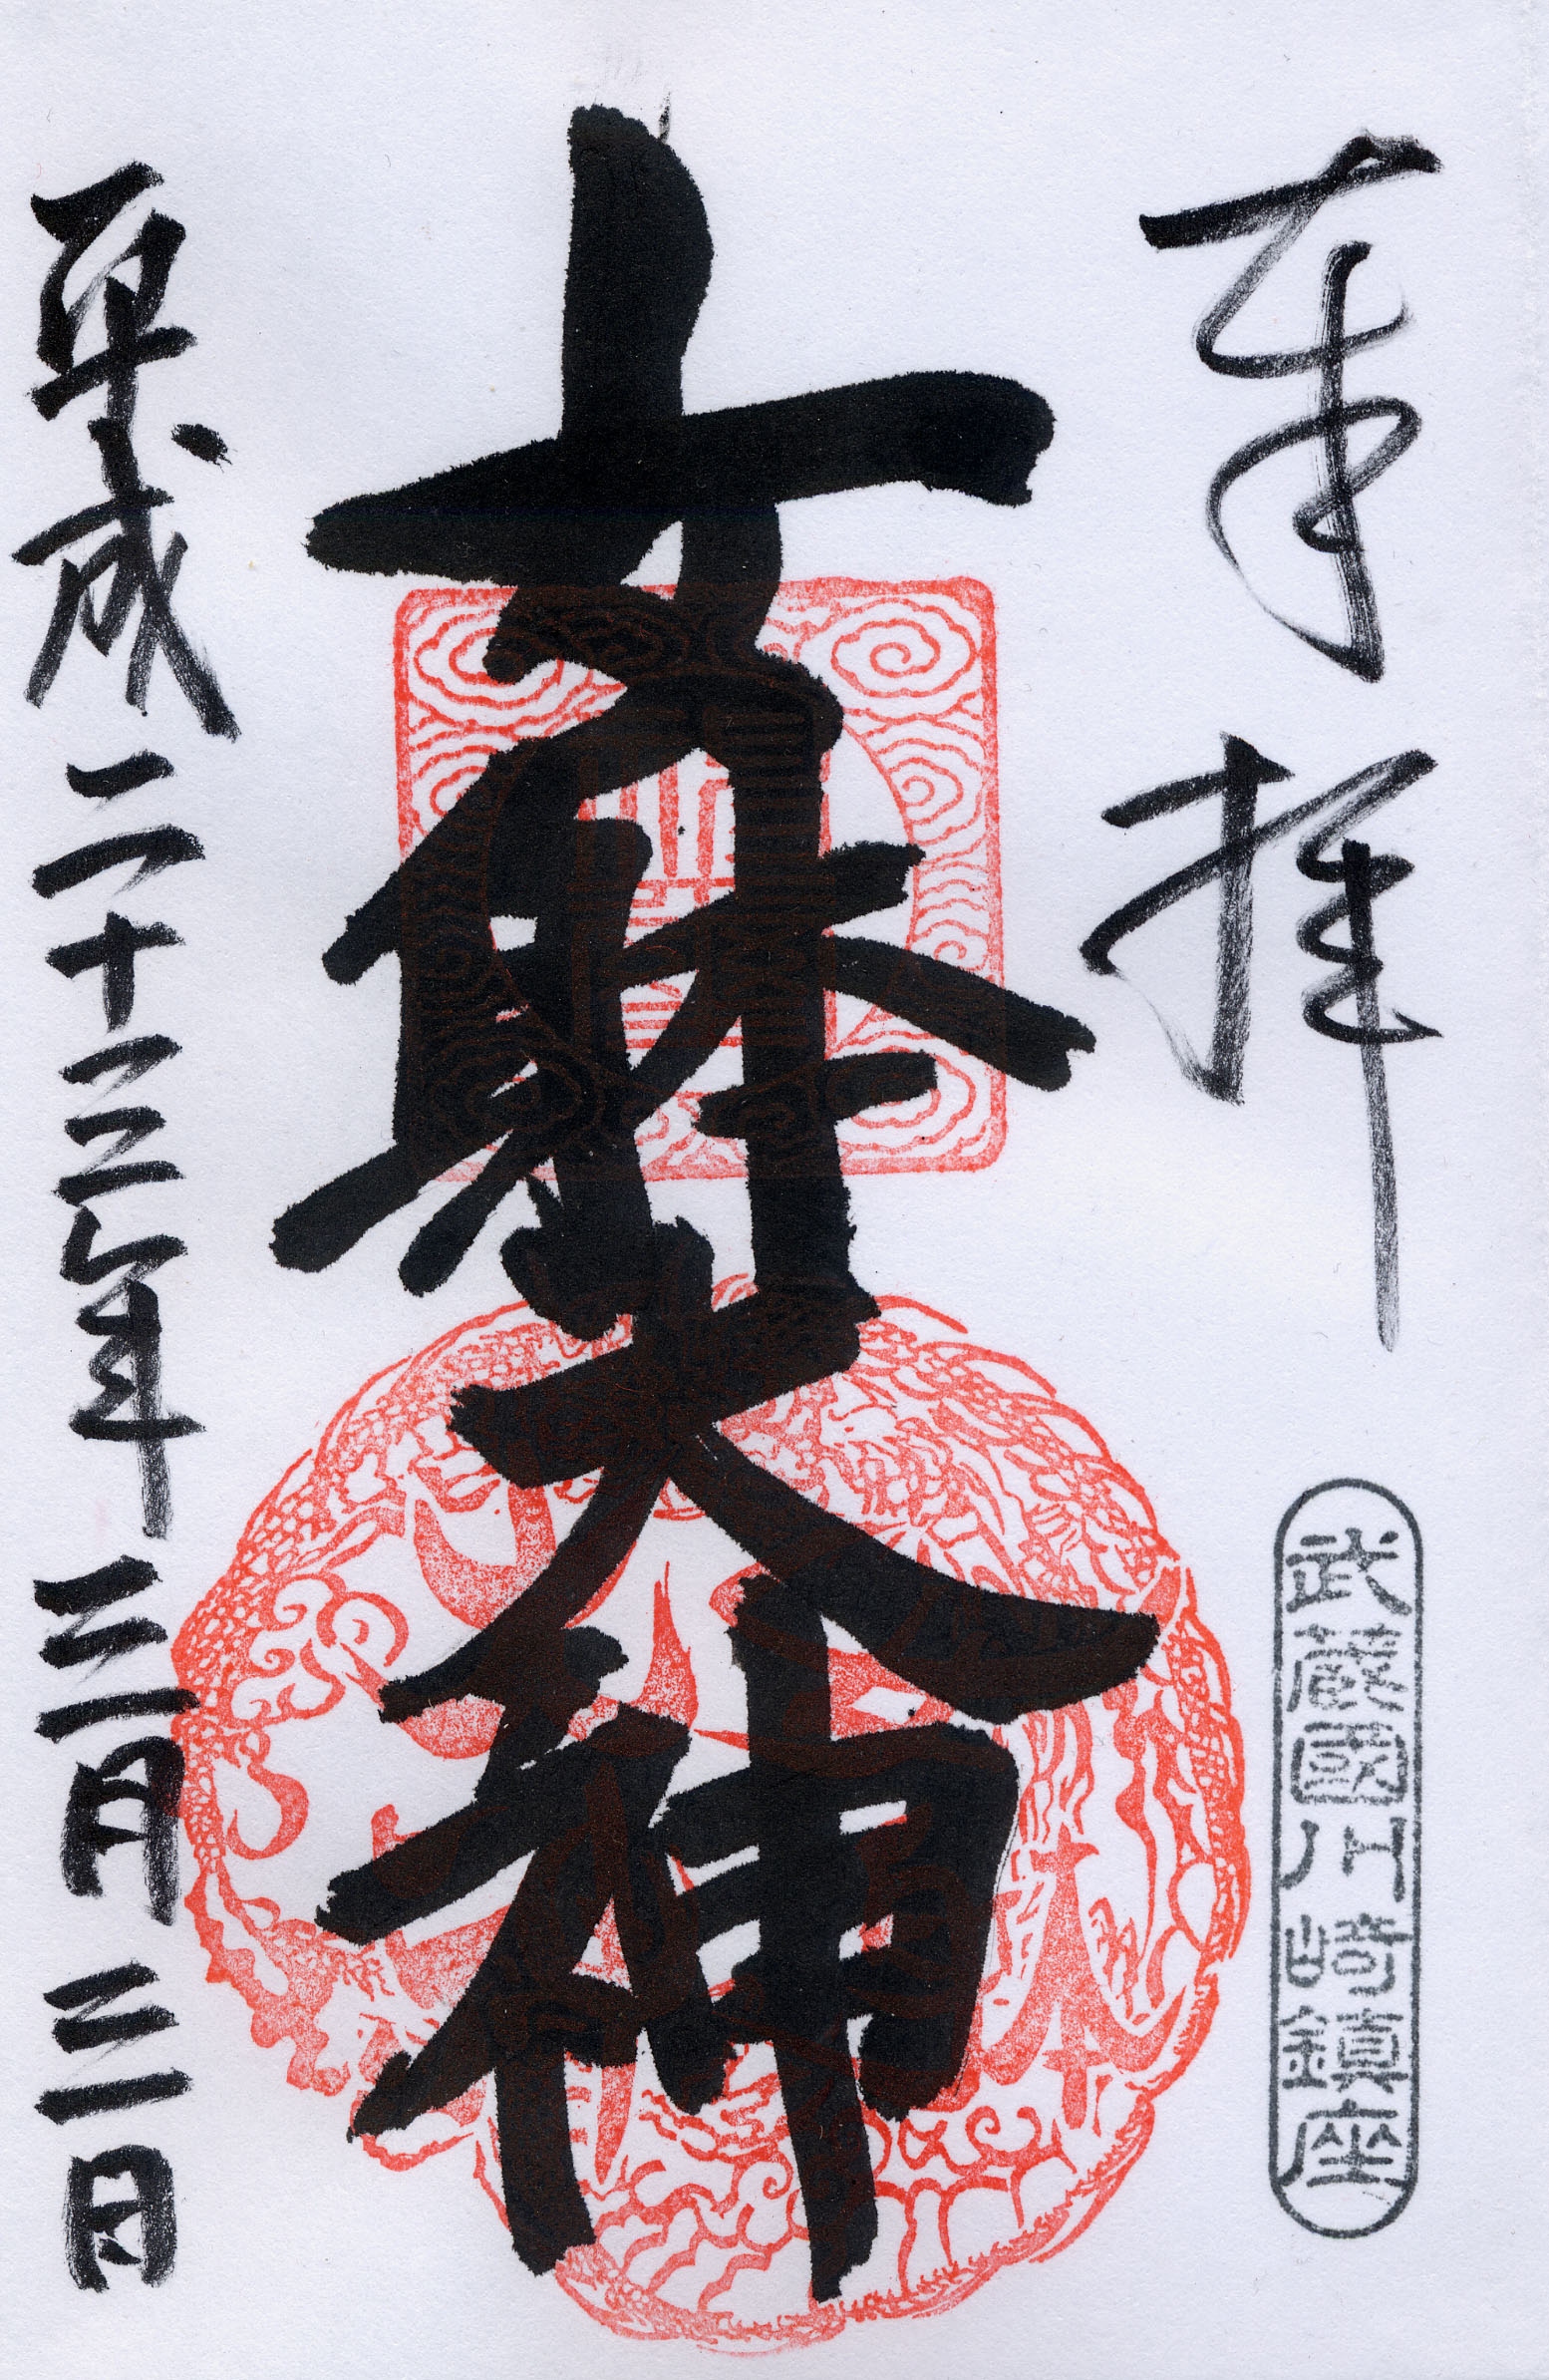 奉拝
武蔵國川崎鎮座
女躰大神
平成二十三年三月三日